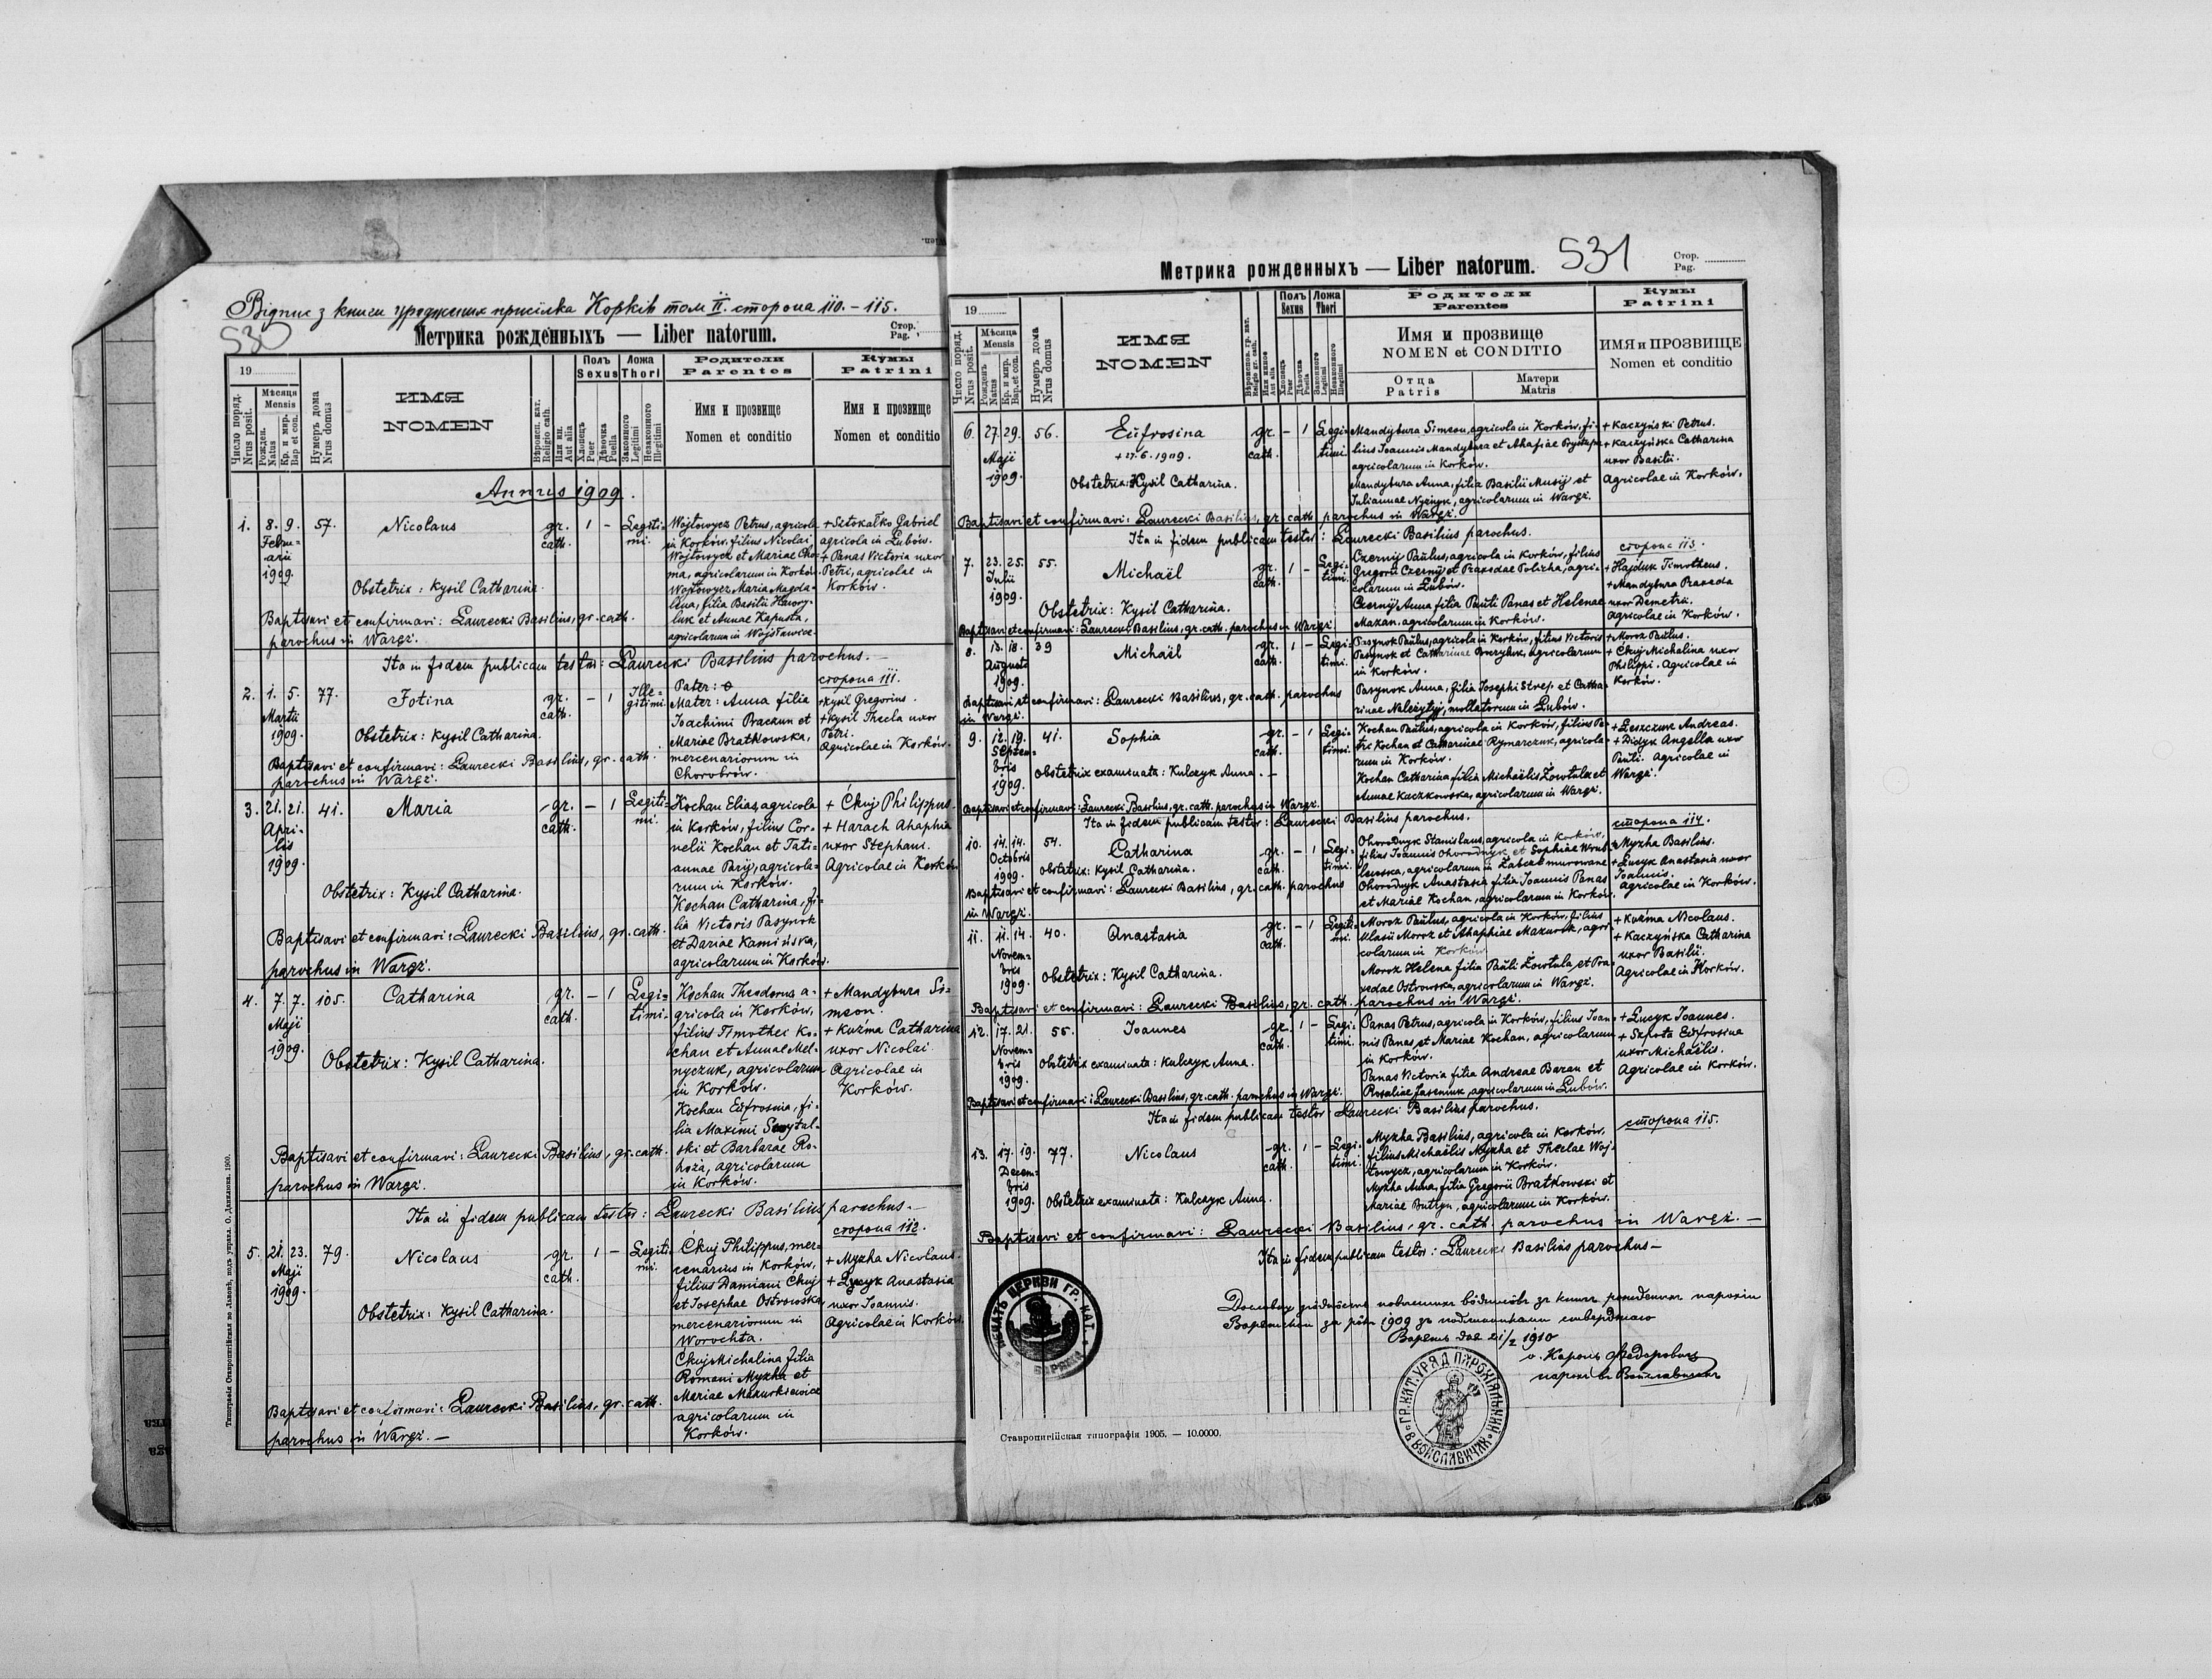 Відпис з книги уроджених присілка Корків том II. сторона 110. – 115.
530
Метрика рожденныхъ — Liber natorum.
Стор.
Pag.
19
Число поряд.
Nrus posit.
Мѣсяца
Mensis
Рожден.
Natus
Кр. и мир.
Bap et con.
Нумеръ дома
Nrus domus
ИМЯ
NOMEN
Вѣроисп. кат.
Religio cath.
Или ин.
Aut alia
Полъ
Sexus
Хлопецъ
Puer
Дѣвочка
Puella
Ложа
Thori
Законного
Legitimi
Незаконного
Illegitimi
Родители
Parentes
Имя и прозвище
Nomen et conditio
Кумы
Patrini
Имя и прозвище
Nomen et conditio
Annus 1909.
1. 8. 9. 57. Nicolaus gr. 1 – Legiti-
Febru-
arii
1909.
cath. mi.
Wojtowycz Petrus, agricola
in Korków, filius Nicolai
Wojtowycz et Mariae Cho-
ma, agricolarum in Korków.
Wojtowycz Maria Magda-
lena, filia Basilii Hawry-
luk et Annae Kapusta,
agricolarum in Wojsławice.
+ Sitokałko Gabriel
agricola in Łubów.
+ Panas Victoria uxor
Petri, agricolae in
Korków.
Obstetrix: Kysil Catharina.
Baptisavi et confirmavi: Laurecki Basilius, gr. cath.
parochus in Waręż.
Ita in fidem publicam testor: Laurecki Basilius parochus.—
сторона 111.
2. 1. 5. 77. Fotina gr. – 1 Ille-
Martii
1909.
cath. gitimi.
Pater: 0
Mater: Anna filia
Joachimi Brackun et
Mariae Bratkowska,
mercenariorum in
Chorobrów.
+ Kysil Gregorius.
+ Kysil Thecla uxor
Petri.
Agricolae in Korków.
Obstetrix: Kysil Catharina.
Baptisavi et confirmavi: Laurecki Basilius, gr. cath.
parochus in Waręż.
3. 21. 21. 41. Maria gr. – 1 Legiti-
Apri-
lis
1909.
cath. mi.
Kochan Elias, agricola
in Korków, filius Cor-
nelii Kochan et Tati-
annae Paryj, agricola-
rum in Korków.
Kochan Catharina, fi-
lia Victoris Pasynok
et Dariae Kamińska,
agricolarum in Korków.
+ Ćkuj Philippus.
+ Harach Ahaphia
uxor Stephani.
Agricolae in Korków
Obstetrix: Kysil Catharina.
Baptisavi et confirmavi: Laurecki Basilius, gr. cath.
parochus in Waręż.
4. 7. 7. 105. Catharina gr. – 1 Legi-
Maji
1909.
cath. timi.
Kochan Theodorus a-
gricola in Korków,
filius Timothei Ko-
chan et Annae Mel-
nyczuk, agricolarum
in Korków.
Kochan Eufrosina, fi-
lia Maximi Skrytal-
ski et Barbarae Ro-
hoża, agricolarum
in Korków.
+ Mandybura Si-
meon.
+ Kuźma Catharina
uxor Nicolai.
Agricolae in
Korków.
Obstetrix: Kysil Catharina.
Baptisavi et confirmavi: Laurecki Basilius, gr. cath.
parochus in Waręż.
Ita in fidem publicam testor: Laurecki Basilius parochus.—
сторона 112.
5. 21. 23. 79. Nicolaus gr. 1 – Legiti-
Maji
1909.
cath. mi.
Ckuj Philippus, mer-
cenarius in Korków,
filius Damiani Ćkuj
et Josephae Ostrowska,
mercenariorum in
Worochta.
Ckuj Michalina filia
Romani Myzha et
Mariae Mazurkiewicz
agricolarum in
Korków.
+ Myzha Nicolaus.
+ Łucyk Anastasia
uxor Joannis.
Agricolae in Korków.
Obstetrix: Kysil Catharina.
Baptisavi et confirmavi: Laurecki Basilius, gr. cath.
parochus in Waręż.—
Типографія Ставропигійская во Львовѣ, подъ управл. О. Данилюка. 1900.
Метрика рожденныхъ — Liber natorum. 531
Стор.
Pag.
19
Число поряд.
Nrus posit.
Мѣсяца
Mensis
Рожденъ
Natus
Кр. и мир.
Bap. et con.
Нумеръ дома
Nrus domus
ИМЯ
NOMEN
Вѣроиспов. гр. кат.
Religio gr. cath.
Или инное
Aut alia
Полъ
Sexus
Хлопецъ
Puer
Дѣвочка
Puella
Ложа
Thori
Законного
Legitimi
Незаконного
Illegitimi
Родители
Parentes
Имя и прозвище
NOMEN et CONDITIO
Отца
Patris
Матери
Matris
Кумы
Patrini
ИМЯ и ПРОЗВИЩЕ
Nomen et conditio
6. 27. 29. 56. Eufrosina gr. – 1 Legi-
Maji
1909.
+ 27.6.1909.
cath. timi.
Mandybura Simeon, agricola in Korków, fi-
lius Joannis Mandybura et Ahafiae Prystupa
agricolarum in Korków.
Mandybura Anna, filia Basilii Musij et
Juliannae Nyżnyk, agricolarum in Waręż.
+ Kaczyński Petrus.
+ Kaczyńska Catharina
uxor Basilii.
Agricolae in Korków.
Obstetrix: Kysil Catharina.
Baptisavi et confirmavi: Laurecki Basilius, gr. cath. parochus in Waręż.
Ita in fidem publicam testor: Laurecki Basilius parochus.
сторона 113.
7. 23. 25. 55. Michaël gr. 1 – Legi-
Julii
1909.
cath. timi.
Czernij Paulus, agricola in Korków, filius
Gregorii Czernij et Praxedae Policha, agri-
colarum in Łubów.
Czernij Anna filia Pauli Panas et Helenae
Mazan, agricolarum in Korków.
+ Hajduk Timotheus.
+ Mandybura Praxeda
uxor Demetrii.
Agricolae in Korków.
Obstetrix: Kysil Catharina.
Baptisavi et confirmavi: Laurecki Basilius, gr. cath. parochus in Waręż
8. 13. 18. 39 Michaël gr. 1 – Legi-
Augusti
1909.
cath. timi.
Pasynok Paulus, agricola in Korków, filius Victoris
Pasynok et Catharinae, agricolarum
in Korków.
Pasynok Anna, filia Josephi Strep. et Catha-
rinae Należytyj, mollatorum in Łubów.
+ Moroz Paulus.
+ Ckuj Michalina uxor
Philippi. Agricolae in
Korków.
Baptisavi et confirmavi: Laurecki Basilius, gr. cath. parochus
in Waręż.
9. 12. 19. 41. Sophia gr. – 1 Legi-
Septem-
bris
1909.
cath. timi.
Kochan Paulus, agricola in Korków, filius Pe-
tri Kochan et Catharinae Rymarczuk, agricola-
rum in Korków.
Kochan Catharina filia Michaëlis Żowtula et
Annae Kaczkowska, agricolarum in Waręż.
+ Leszczuk Andreas.
+ Didyk Angella uxor
Pauli. Agricolae in
Waręż.
Obstetrix examinata: Kulczyk Anna.–
Baptisavi et confirmavi: Laurecki Basilius, gr. cath. parochus in Waręż.
Ita in fidem publicam testor: Laurecki Basilius parochus.
сторона 114.
10. 14. 14. 54. Catharina gr. – 1 Legi-
Octobris
1909.
cath. timi.
Ohorodnyk Stanislaus, agricola in Korków,
filius Joannis Ohorodnyk et Sophiae Wrub-
lewska, agricolarum in Żabcze murowane
Ohorodnyk Anastasia filia Joannis Panas
et Mariae Kochan, agricolarum in Korków.
+ Myzha Basilius.
+ Łucyk Anastasia uxor
Joannis.
Agricolae in Korków.
Obstetrix: Kysil Catharina.
Baptisavi et confirmavi: Laurecki Basilius, gr. cath. parochus
in Waręż.
11. 11. 14. 40. Anastasia gr. – 1 Legiti-
Novem-
bris
1909.
cath. mi.
Moroz Paulus, agricola in Korków, filius
Ulasii Moroz et Ahaphiae Mazurok, agri-
colarum in Korków
Moroz Helena filia Pauli Żowtula et Pra-
xedae Ostrowska, agricolarum in Waręż.
+ Kuźma Nicolaus.
+ Kaczyńska Catharina
uxor Basilii.
Agricolae in Korków.
Obstetrix: Kysil Catharina.
Baptisavi et confirmavi: Laurecki Basilius, gr. cath. parochus in Waręż.
12. 17. 21. 55. Joannes gr. 1 – Legi-
Novem-
bris
1909.
cath. timi.
Panas Petrus, agricola in Korków, filius Joan-
nis Panas et Mariae Kochan, agricolarum
in Korków.
Panas Victoria filia Andreae Baran et
Rosaliae Jaseniuk, agricolarum in Łubów.
+ Łucyk Joannes.
+ Szpota Eufrosina
uxor Michaëlis.
Agricolae in Korków.
Obstetrix examinata: Kulczyk Anna.
Baptisavi et confirmavi: Laurecki Basilius, gr. cath. parochus in Waręż.
Ita in fidem publicam testor: Laurecki Basilius parochus.
сторона 115.
13. 17. 19. 77. Nicolaus gr. 1 – Legi-
Decem-
bris
1909.
cath. timi.
Myzha Basilius, agricola in Korków,
filius Michaëlis Myzha et Theclae Woj-
towycz, agricolarum in Korków.
Myzha Anna, filia Gregorii Bratkowski et
Mariae Butryn, agricolarum in Korków.
Obstetrix examinata: Kulczyk Anna.
Baptisavi et confirmavi: Laurecki Basilius, gr. cath. parochus in Waręż.—
Ita in fidem publicam testor: Laurecki Basilius parochus—
за рôкъ 1909 зъ подлинниками стверджаю
Варяжъ дня 21/2 1910
о. Кароль Федоровичъ
парохъ в Войславичахъ
ПЕЧАТЬ ЦЕРКВИ ГР. КАТ. ВАРЯЖЪ
ГР. КАТ. УРЯД ПАРОХІЯЛЬНИЙ В ВОЙСЛАВИЧАХ
Ставропигійская типографія 1905. — 10.0000.